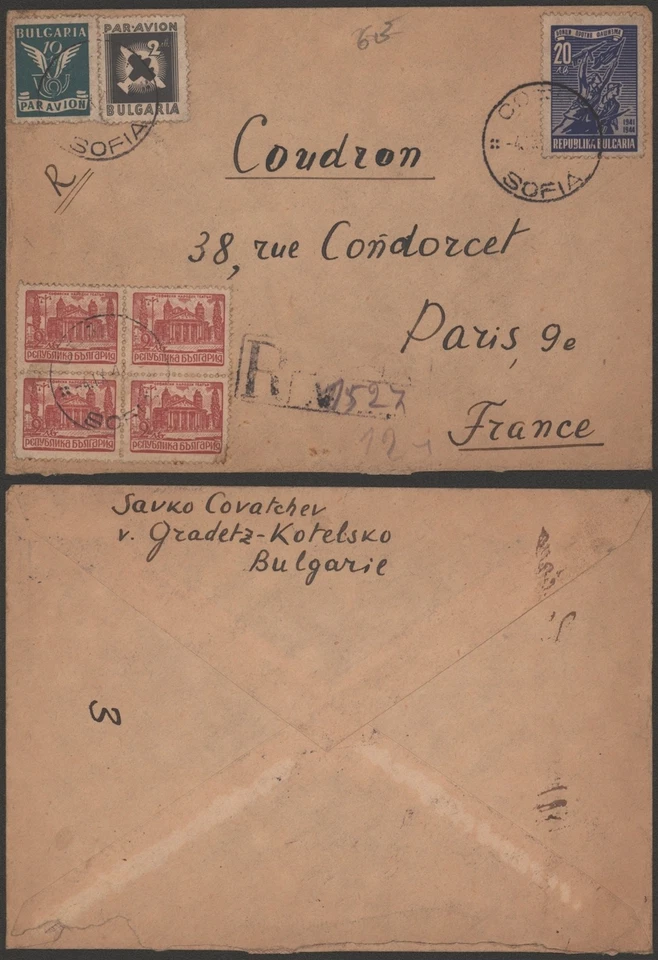 BULGARIA
10
PAR AVION
PAR-AVION
2
BULGARIA
SOFIA
R
20
1941
1944
REPUBLIKA BULGARIA
SOFIA
Coudron
38, rue Condorcet
Paris, 9e
France
РЕПУБЛИКА БЪЛГАРИЯ
РЕПУБЛИКА БЪЛГАРИЯ
РЕПУБЛИКА БЪЛГАРИЯ
РЕПУБЛИКА БЪЛГАРИЯ
R
1527
12
Savko Covatchev
v. Gradetz-Kotelsko
Bulgarie
3